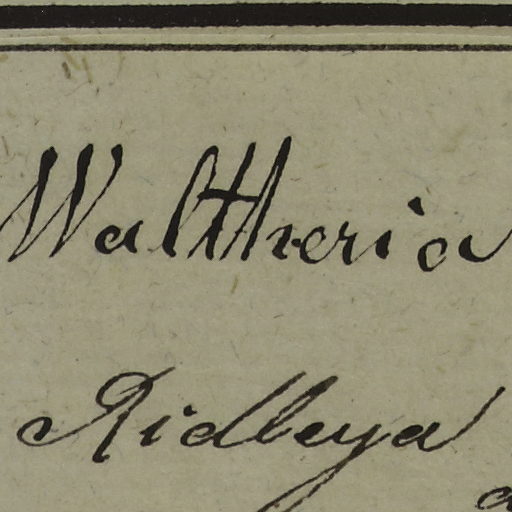 Waltheria
Ridleya